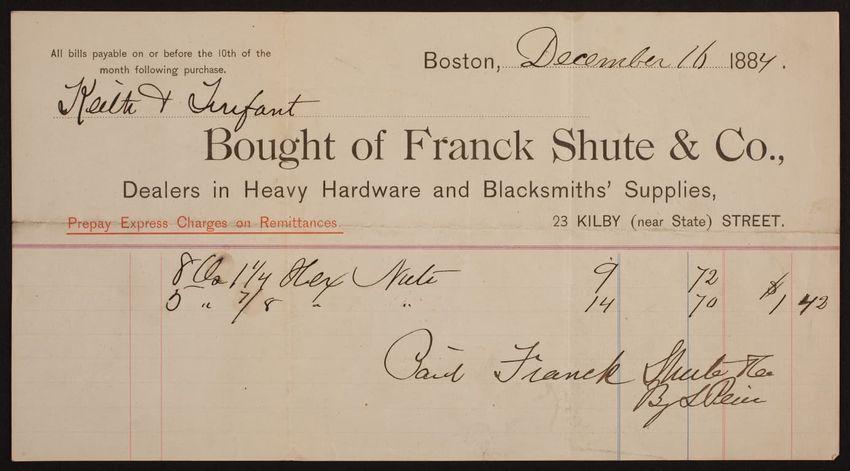 All bills payable on or before the 10th of the
month following purchase.
Boston, December 16 1884.
Keith &
Bought of Franck Shute & Co.,
Dealers in Heavy Hardware and Blacksmiths' Supplies,
Prepay Express Charges on Remittances.
23 KILBY (near State) STREET.
8 1 1/4 Hex Nuts 9 72
5 " 7/8 " " 14 70 $1 42
Paid Franck Shute & Co
By